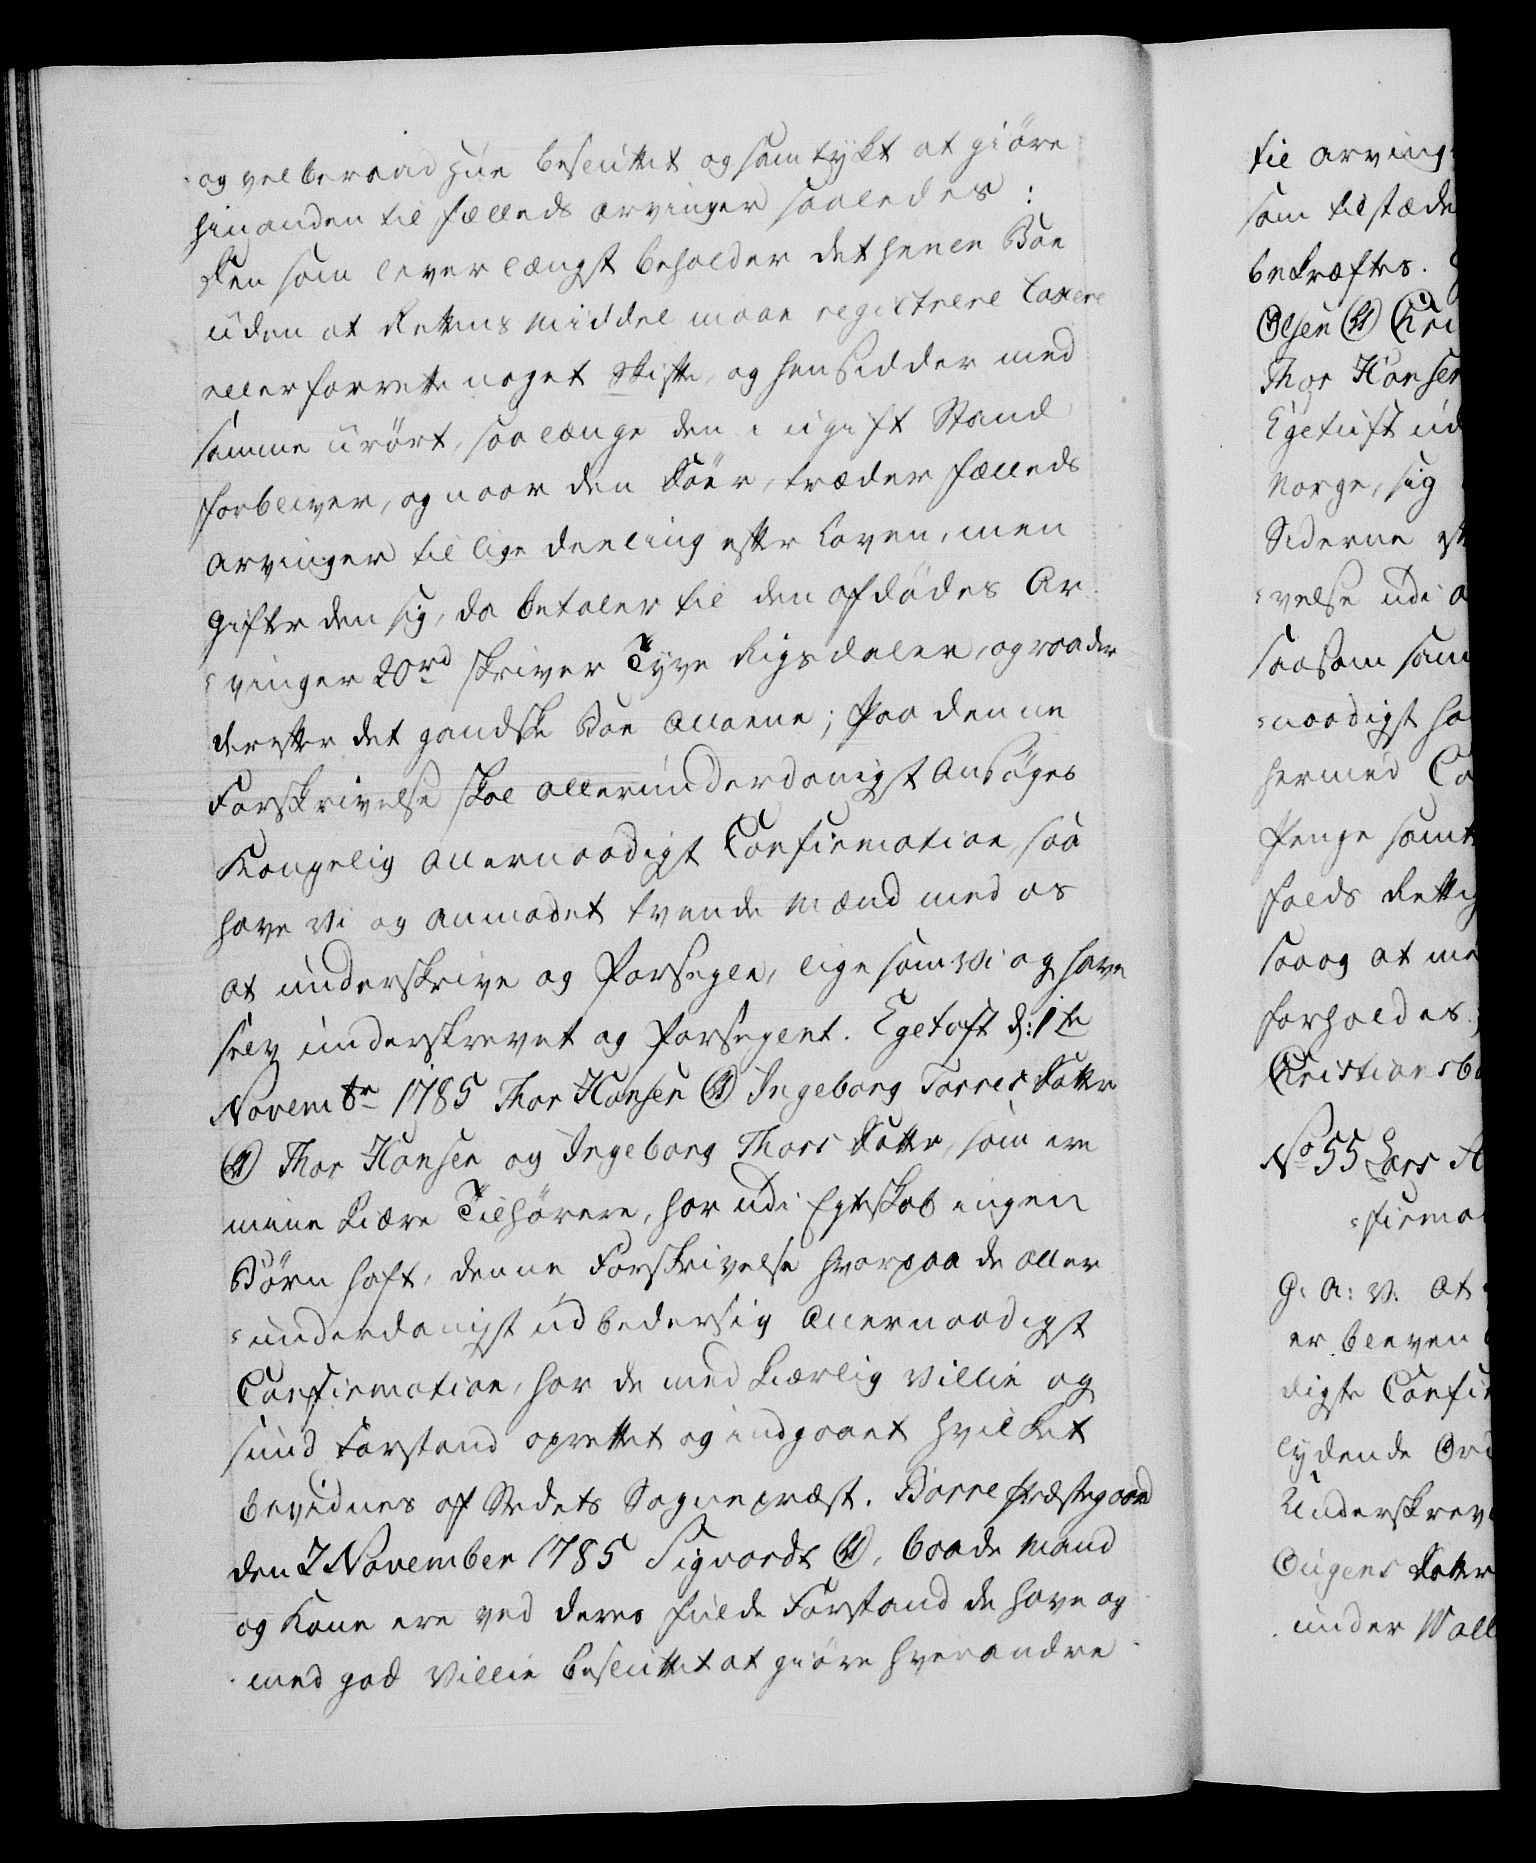 og velberaad Hue besluttet og samtykt at giöre
hinanden til fælleds arvinger saaledes :
Den som lever længst beholder det heele Boe
uden at Rettens Middel maae registrere taxere
eller forrette noget Skifte, og hensidder med
samme urört, saa længe den i ugift Stand
forbliver, og naar den döer, træder fælleds
arvinger til lige deeling efter Loven, men
gifter den sig, da betaler til den afdödes Ar
=vinger 20rd skriver Tyve Rigsdaler, og raader
derefter det gandske Boe alleene; Paa denne
Forskrivelse skal allerunderdanigst ansöges
Kongelig allernaadigst Confirmation, saa
have Vi og anmodet tvende Mænd med os
at underskrive og forsegle, lige som Vi og have
selv underskrevet og forseglet. Egetoft d: 1te
Novembr 1785 Thor Hansen (LS) Ingeborg Torres Datter
(LS) Thor Hansen og Ingeborg Thors Datter, som ere
mine kiære Tilhörere, har udi Egteskab ingen
Börn haft, denne Forskrivelse hvorpaa de aller
=underdanigst udbeder sig Allernaadigst
Confirmation, har de med kiærlig Villie og
sund Forstand oprettet og indgaaet hvilket
bevidnes af Stedets Sognepræst. Borre Præstegaard
den 7 November 1785 Sigvardt (LS), baade Mand
og Kone ere ved deres fulde Forstand de have og
med god Villie besluttet at giöre hverandre
til arving
som tilstæde
bekræftes.
Olsen (LS)
Thor Hansen
Egetuft ud
Norge, sig
Siderne
=velse udi
saasom sam
=naadigst ha
hermed Co
Penge samt
falds Rettig
saa og at me
forholdes
Christiansbo
No 55 Lars
=firma
G: A: V. at
er bleven
digste Confir
lydende Ord
Underskrev
Datter
under Wall